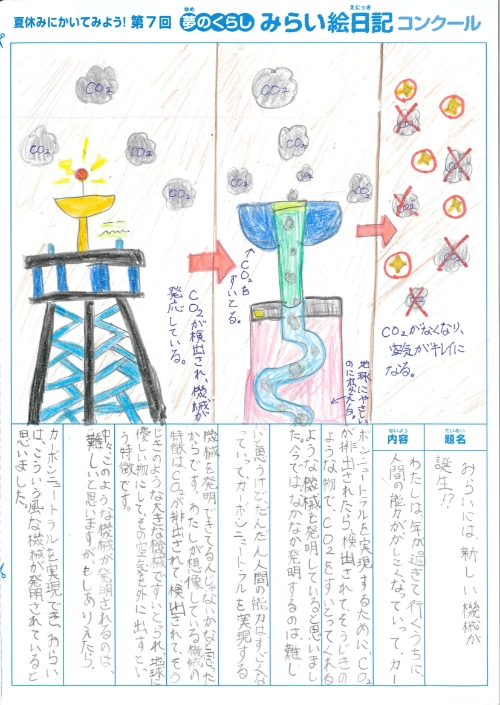 夏休みにかいてみよう！ 第７回 夢のくらし みらい絵日記 コンクール
ゆめ
えにっき
CO2
CO2
CO2
CO2
CO2が検出され、機械が
発応している。
CO2
CO2
CO2
CO2
CO2
↑CO2を
すいとる。
地球にやさしい
のに変える。
CO2
CO2
CO2
CO2
CO2
CO2がなくなり、
空気がキレイに
なる。
だいめい
題名
みらいには、新しい機械が
誕生!?
ないよう
内容
わたしは、年が過ぎて行くうちに、
人間の能力がかしこくなっていって、カー
ボンニュートラルを実現するために、CO2
が排出されたら、検出されて、そうじきの
ような物で、CO2をすいとってくれる
ような機械を発明していると思いまし
た。今ではなかなか発明するのは、難し
いと思うけど、だんだん人間の能力はすごくな
っていって、カーボンニュートラルを実現する
機械を発明できてるんじゃないかなと思った
からです。わたしが想像している機械の
特徴は、CO2が排出されて、検出されて、そう
じきのような大きな機械ですいとられ、地球に
優しい物にして、その空気を外に出すとい
う特徴です。
中々このような機械が発明されるのは、
難しいと思いますが、もしありえたら、
カーボンニュートラルを実現でき、みらい
は、こういう風な機械が発明されていると
思いました。